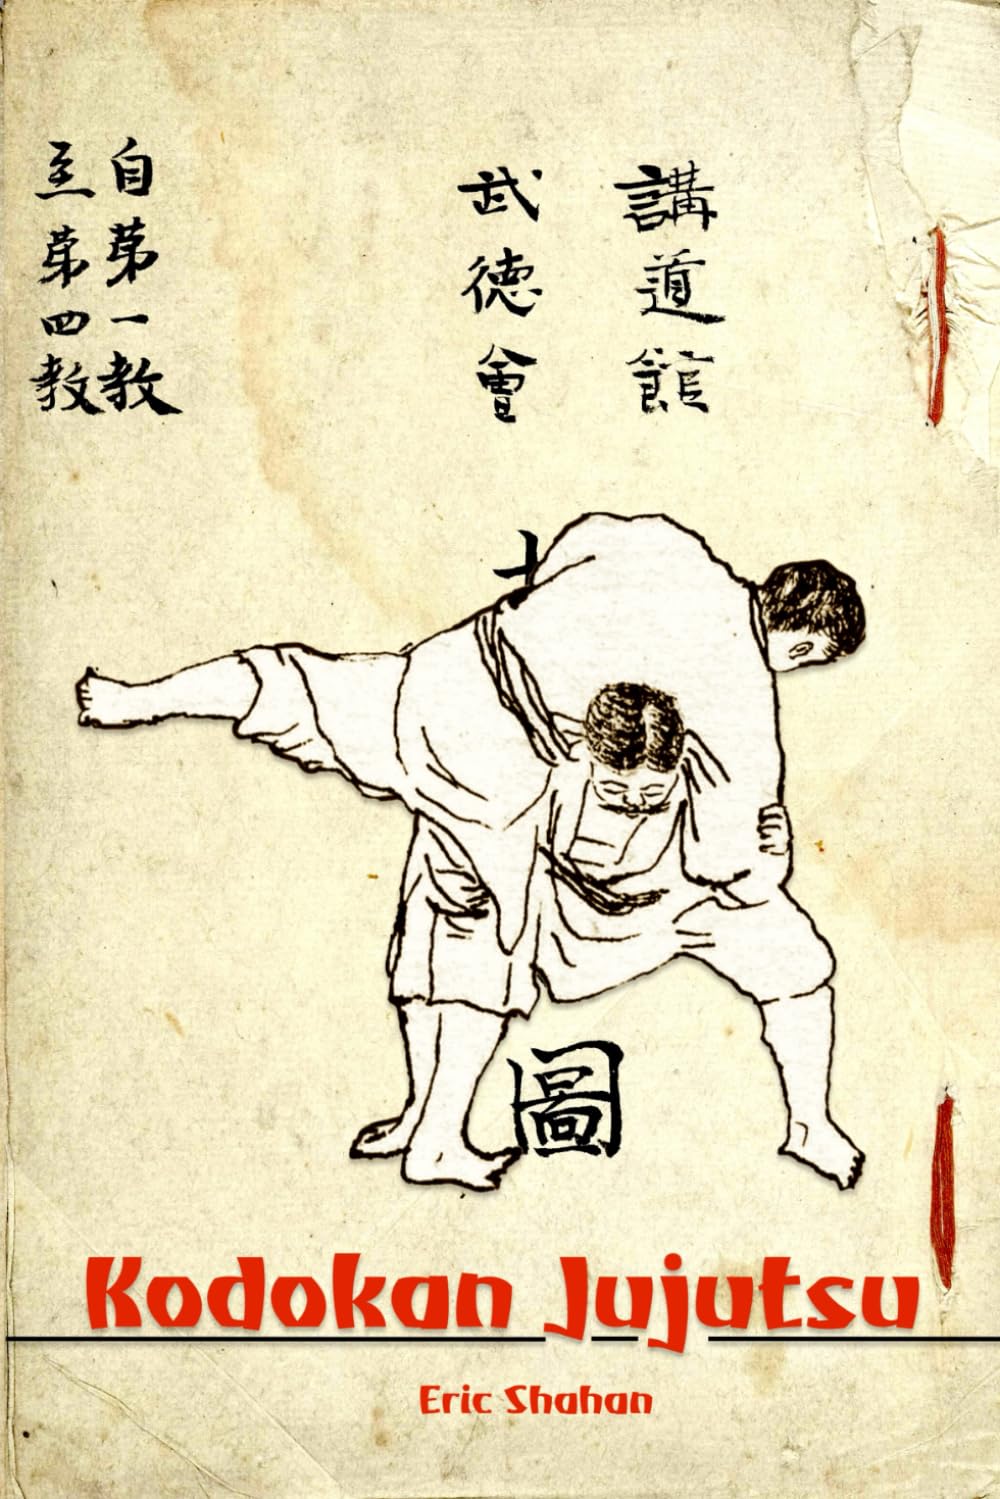 講道館
武德會
圖
自第一教
至第四教
Kodokan Jujutsu
Eric Shahan